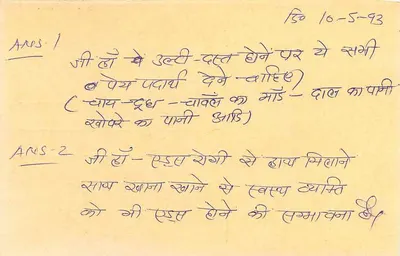 दि० 10-5-93
ANS.1
जी हाँ ये उल्टी-दस्त होने पर ये सभी
पेय पदार्थ देने चाहिए
(चाय-दूध-चावल का माँड-दाल का पानी
खोपरे का पानी आदि)
ANS-2 जी हाँ - एड्स रोगी से हाथ मिलाने
साथ खाना खाने से स्वस्थ व्यक्ति
को भी एड्स होने की सम्भावना है।